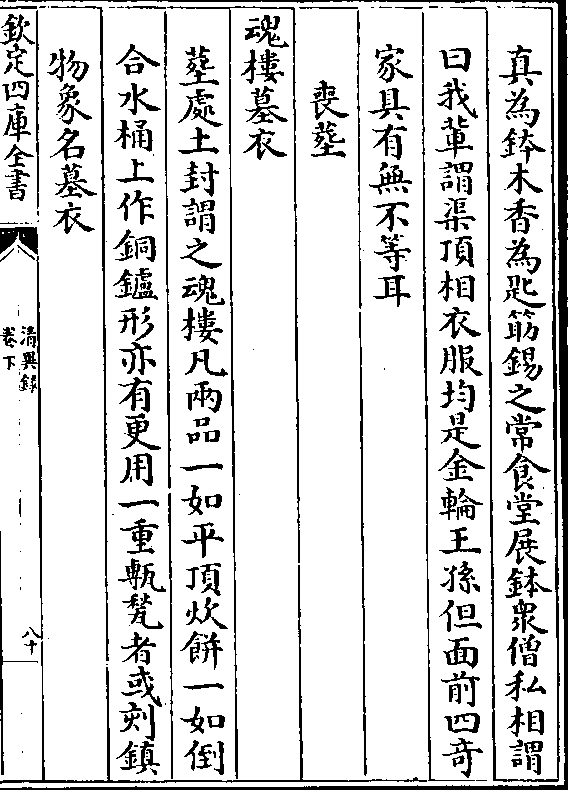 真為鉢木香為匙筯錫之常食堂展鉢衆僧私相謂
曰我輩謂渠頂相衣服均是金輪王孫但面前四竒
家具有無不等耳
喪塟
魂樓墓衣
塟處土封謂之魂樓凡兩品一如平頂炊餅一如倒
合水桶上作銅鑪形亦有更用一重甎甃者或刻鎮
物象名墓衣
欽定四庫全書
清異錄
卷下
八十